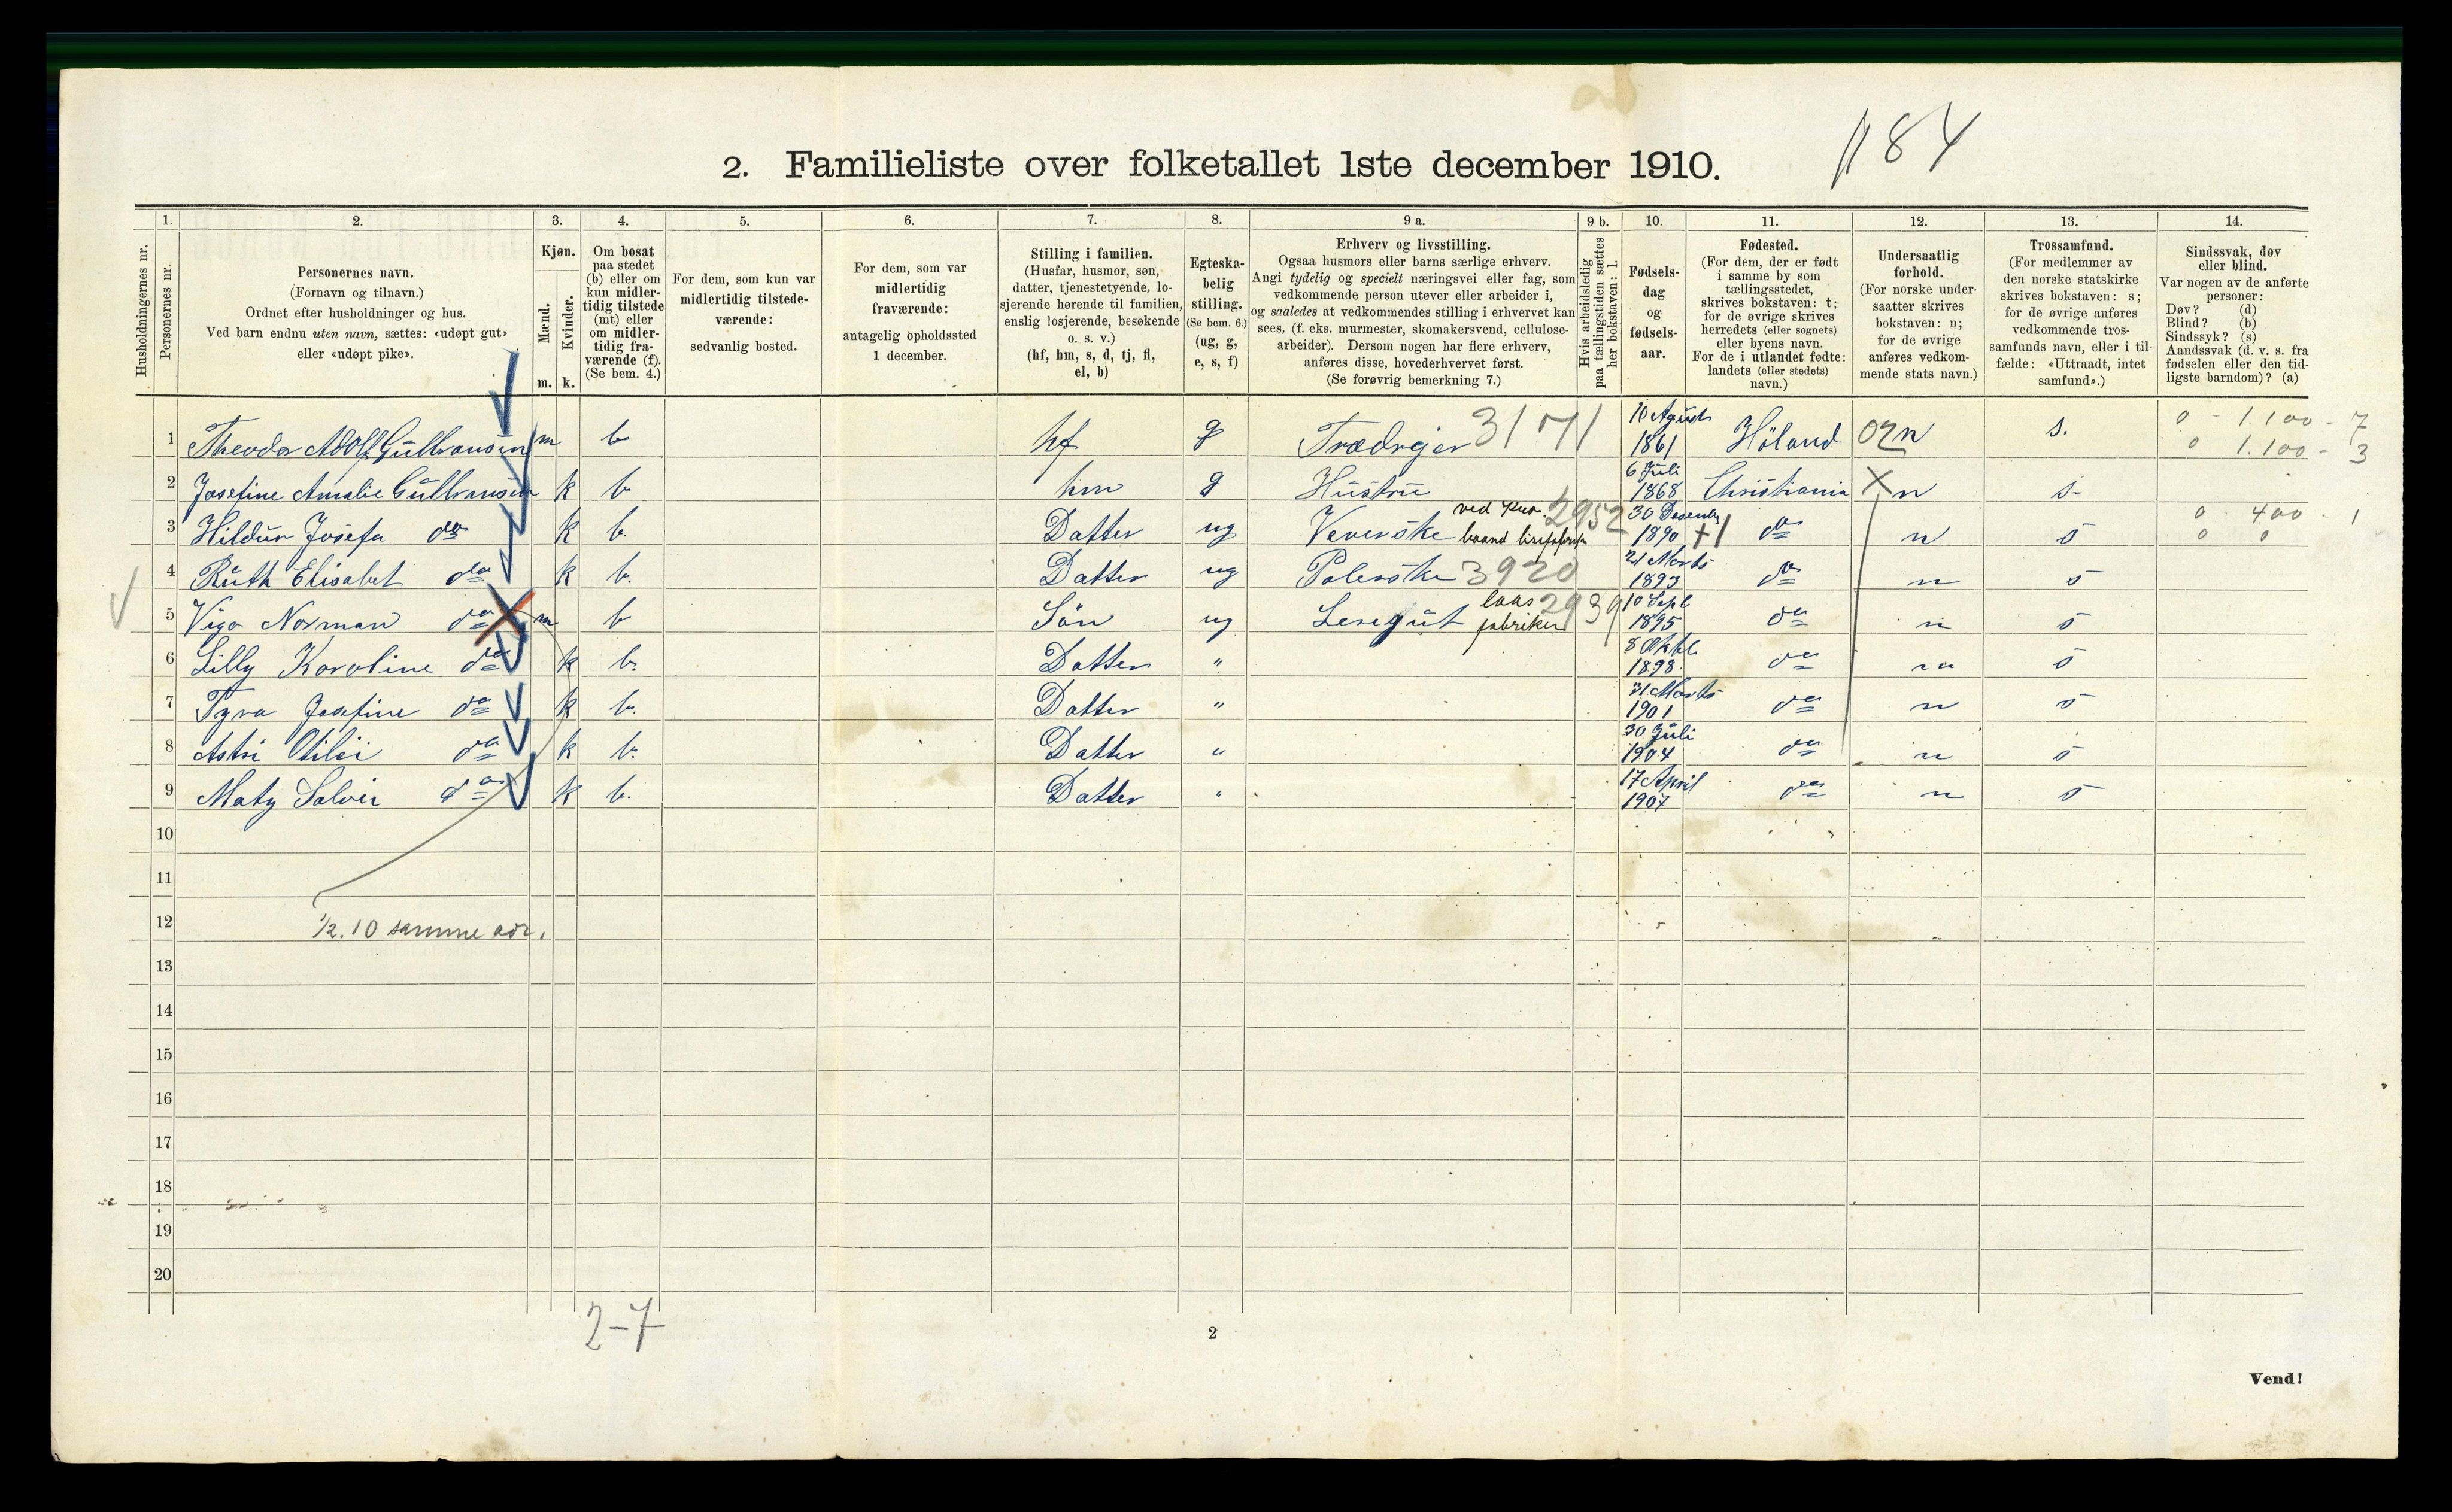 2. Familieliste over folketallet 1ste december 1910.
184
1. 2. 3. 4. 5. 6. 7. 8. 9 a. 9 b. 10. 11. 12. 13. 14.
Husholdningernes nr.
Personernes nr.
Personernes navn.
(Fornavn og tilnavn.)
Ordnet efter husholdninger og hus.
Ved barn endnu uten navn, sættes: «udøpt gut»
eller «udøpt pike».
Kjøn.
Mænd.
Kvinder.
m. k.
Om bosat
paa stedet
(b) eller om
kun midler-
tidig tilstede
(mt) eller
om midler-
tidig fra-
værende (f).
(Se bem. 4.)
For dem, som kun var
midlertidig tilstede-
værende:
sedvanlig bosted.
For dem, som var
midlertidig
fraværende:
antagelig opholdssted
1 december.
Stilling i familien.
(Husfar, husmor, søn,
datter, tjenestetyende, lo-
sjerende hørende til familien,
enslig losjerende, besøkende
o. s. v.)
(hf, hm, s, d, tj, fl,
el, b)
Egteska-
belig
stilling.
(Se bem. 6.)
(ug, g,
e, s, f)
Erhverv og livsstilling.
Ogsaa husmors eller barns særlige erhverv.
Angi tydelig og specielt næringsvei eller fag, som
vedkommende person utøver eller arbeider i,
og saaledes at vedkommendes stilling i erhvervet kan
sees, (f. eks. murmester, skomakersvend, cellulose-
arbeider). Dersom nogen har flere erhverv,
anføres disse, hovederhvervet først.
(Se forøvrig bemerkning 7.)
Hvis arbeidsledig
paa tællingstiden sættes
her bokstaven: l.
Fødsels-
dag
og
fødsels-
aar.
Fødested.
(For dem, der er født
i samme by som
tællingsstedet,
skrives bokstaven: t;
for de øvrige skrives
herredets (eller sognets)
eller byens navn.
For de i utlandet fødte:
landets (eller stedets)
navn.)
Undersaatlig
forhold.
(For norske under-
saatter skrives
bokstaven: n;
for de øvrige
anføres vedkom-
mende stats navn.)
Trossamfund.
(For medlemmer av
den norske statskirke
skrives bokstaven: s;
for de øvrige anføres
vedkommende tros-
samfunds navn, eller i til-
fælde: «Uttraadt, intet
samfund».)
Sindssvak, døv
eller blind.
Var nogen av de anførte
personer:
Døv? (d)
Blind? (b)
Sindssyk? (s)
Aandssvak (d. v. s. fra
fødselen eller den tid-
ligste barndom)? (a)
1 Theodor Adolf Gulbransen m b hf g Trædrejer 3171 10 August 1861 Höland 02 n s. 0 - 1.100 - 7
0 1.100 - 3
2 Josefine Amalie Gulbransen k b hm g Hustru 6 Juli 1868 Christiania X n s-
3 Hildur Josefa do k b. Datter ug Veverske ved 2952 30 Desember 1890 +1 do n s 0 400 - 1
0 0
4 Ruth Elisabet do k b. Datter ug Polerske 3920 21 Marts 1893 do n s
5 Vigo Norman do m b Sön ug Lesegut laas fabriken 2939 10 Sept. 1895 do n s
6 Lilly Karoline do k b. Datter " 8 Oktb. 1898. do n s
7 Tyra Josefine do k b. Datter " 31 Marts 1901 do n s
8 Astri Otilie do k b. Datter " 30 Juli 1904 do n s
9 Maty Solvei do k b. Datter " 17 April 1907 do n s
10
11
12 1/2.10 samme adr.
13
14
15
16
17
18
19
20
2-7
2
Vend!